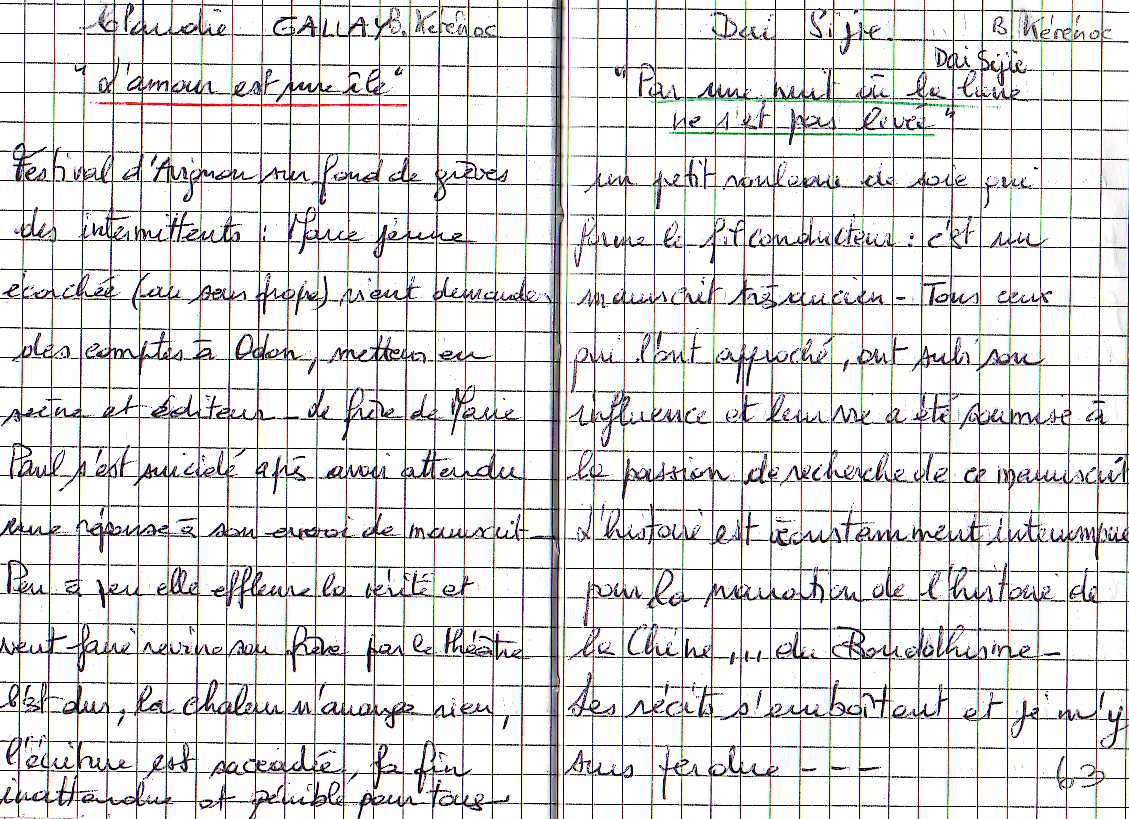 Claudie GALLAY B. Kérénoc
"L'amour est une île"
Festival d'Avignon sur fond de grèves
des intermittents : Marie jeune
écorchée (au sens propre) vient demander
des comptes à Odon, metteur en
scène et éditeur - le frère de Marie
Paul s'est suicidé après avoir attendu
une réponse à son envoi de manuscrit -
Peu à peu elle effleure la vérité et
veut faire revivre son frère par le théâtre
C'est dur, la chaleur n'arrange rien,
l'écriture est saccadée, la fin
inattendue et pénible pour tous -
Dai Sijie. B. Kérénoc
Dai Sijie
"Par une nuit où la lune
ne s'est pas levée"
un petit rouleau de soie qui
forme le fil conducteur : c'est un
manuscrit très ancien - Tous ceux
qui l'ont approché, ont subi son
influence et leur vie a été soumise à
la passion de recherche de ce manuscrit
L'histoire est constamment interrompue
pour la narration de l'histoire de
la Chine,... du Bouddhisme -
Les récits s'emboîtent et je m'y
suis perdue - - -
63